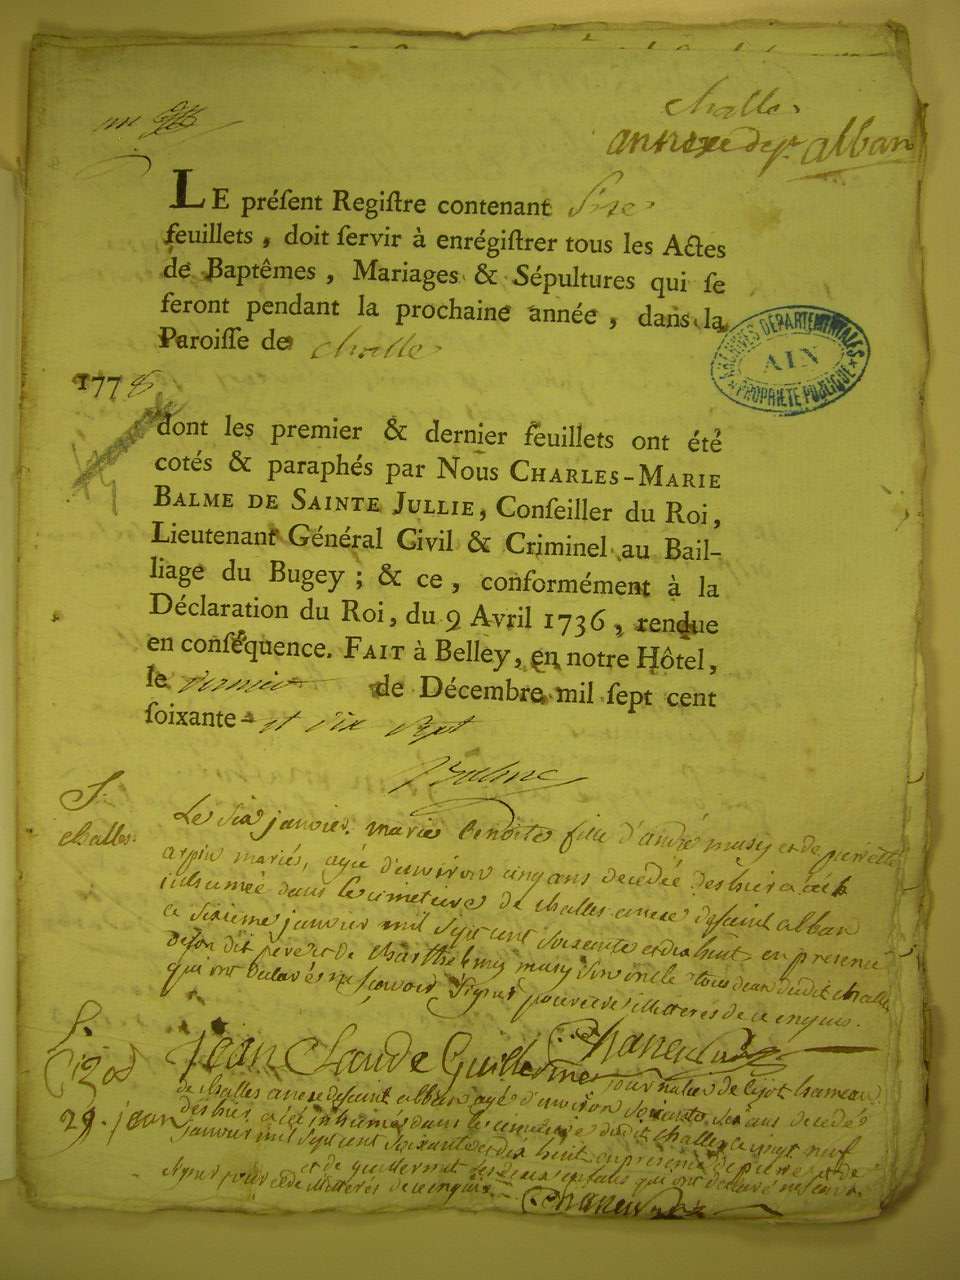 challes
annexe de st alban
LE préſent Regiſtre contenant Six
feuillets, doit ſervir à enrégiſtrer tous les Actes
de Baptêmes, Mariages & Sépultures qui ſe
feront pendant la prochaine année, dans la
Paroiſſe de challe
1778
dont les premier & dernier feuillets ont été
cotés & paraphés par Nous CHARLES-MARIE
BALME DE SAINTE JULLIE, Conſeiller du Roi,
Lieutenant Général Civil & Criminel au Bail-
liage du Bugey; & ce, conformément à la
Déclaration du Roi, du 9 Avril 1736, rendue
en conſéquence. FAIT à Belley, en notre Hôtel,
le dernier de Décembre mil ſept cent
ſoixante- et dix Sept
Balme
ARCHIVES DEPARTEMENTALES
AIN
PROPRIETE PUBLIQUE
S.
challes.
Le Six janvier marie benoite fille d'andré musy et de pierrette
arpin mariés, agée d'environ cinq ans decedée des hier a été
inhumée dans le cimetiere de challes annexe de saint alban
ce sixieme janvier mil sept cent soixante et dix huit en presence
de son dit pere et de barthelemy musy son oncle tous deux dudit challe
qui ont declarés ne scavoir signer pour etre illitterés de ce enquis.
S.
29. jean
jean Claude Guillermet journalier de hameau
de challes annexe de saint alban agé d'environ soixante six ans decedé
des hier a été inhumé dans le cimetiere dudit challes ce vingt neuf
janvier mil sept cent soixante et dix huit en presence de pierre et de
et de guillermet ses qui ont declaré ne scavoir
signer pour etre illitterés de ce enquis